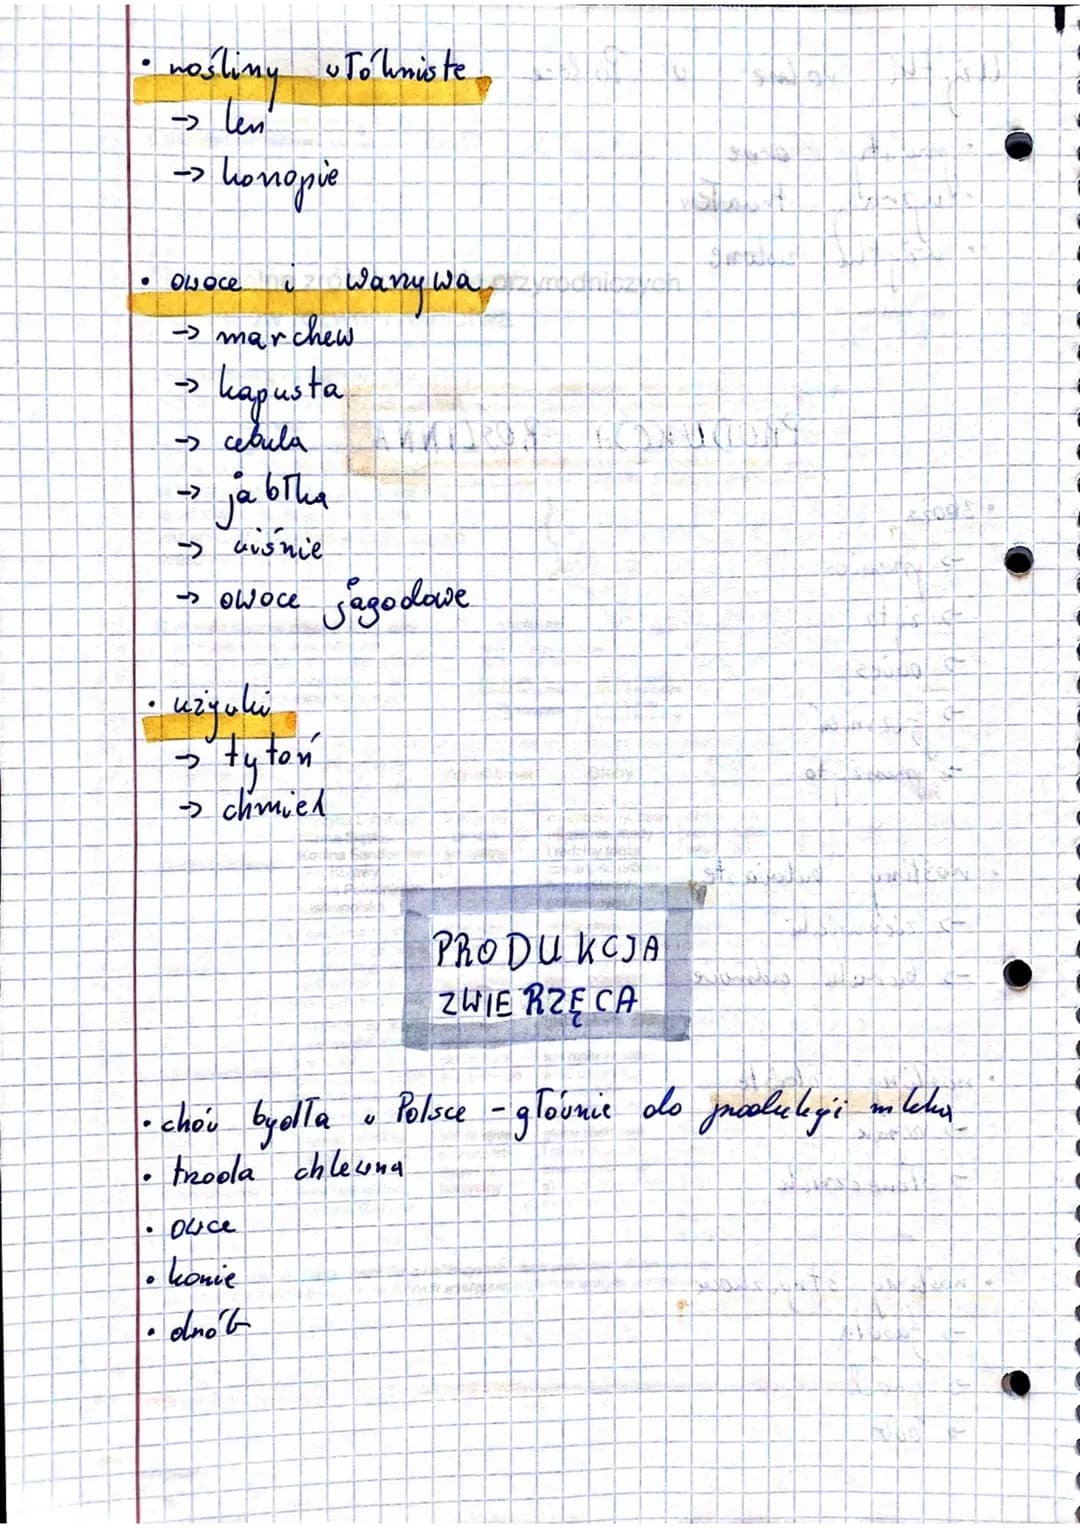 • rośliny włókniste
→ len
→ konopie
• owoce i warzywa
→ marchew
→ kapusta
→ cebula
→ jabłka
→ wiśnie
→ owoce jagodowe
• używki
→ tytoń
→ chmiel
PRODUKCJA
ZWIERZĘCA
• chów bydła w Polsce - głównie do produkcji mleka
• trzoda chlewna
• owce
• konie
• drób